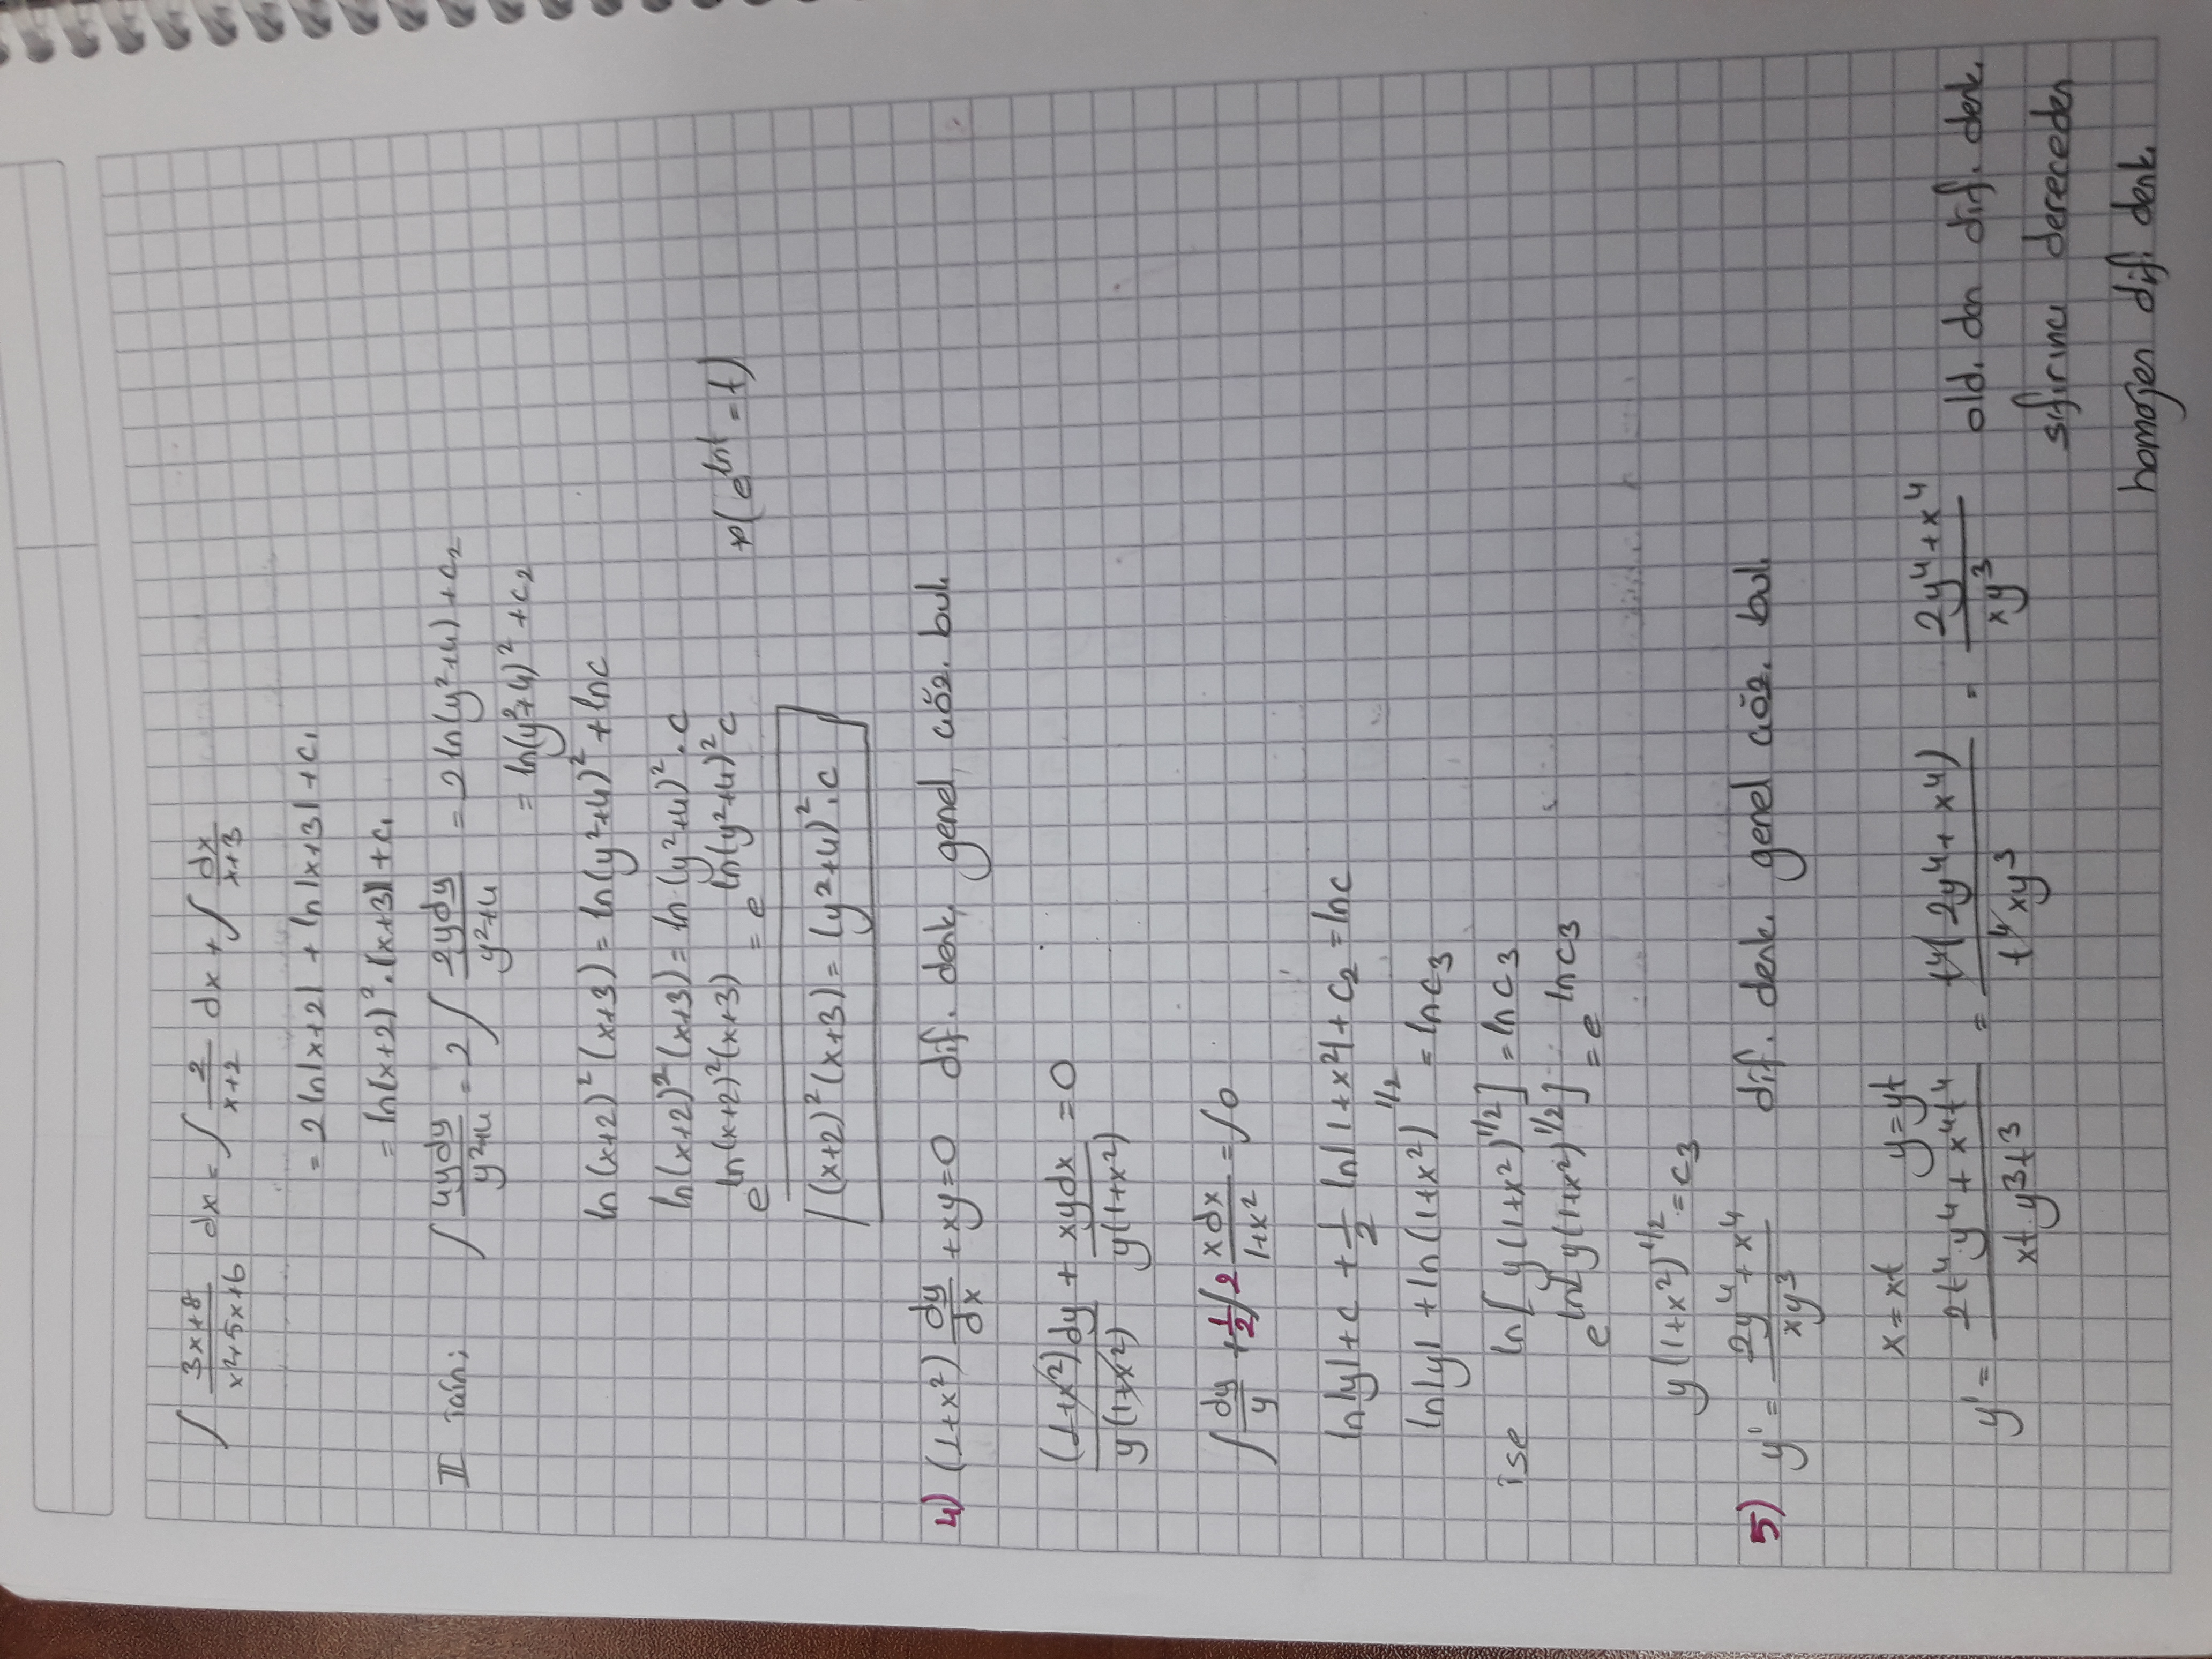 ∫ (3x+8)/(x²+5x+6) dx = ∫ 2/(x+2) dx + ∫ dx/(x+3)
= 2 ln|x+2| + ln|x+3| + c₁
= ln(x+2)².(x+3) + c₁
II için; ∫ 4ydy/(y²+4) = 2 ∫ 2ydy/(y²+4) = 2 ln(y²+4) + c₂
= ln(y²+4)² + c₂
ln(x+2)²(x+3) = ln(y²+4)² + lnc
ln(x+2)²(x+3) = ln(y²+4)².c
e^(ln(x+2)²(x+3)) = e^(ln(y²+4)²c) *(e^(lnt) = t)
(x+2)²(x+3) = (y²+4)².c
4) (1+x²) dy/dx + xy = 0 dif. denk. genel çöz. bul.
(1+x²)dy/(y(1+x²)) + xydx/(y(1+x²)) = 0
∫ dy/y + 1/2 ∫ 2 xdx/(1+x²) = ∫0
ln|y| + c + 1/2 ln|1+x²| + c₂ = lnc
ln|y| + ln(1+x²)^(1/2) = lnc₃
ise ln[y(1+x²)^(1/2)] = lnc₃
e^(ln[y(1+x²)^(1/2)]) = e^(lnc₃)
y(1+x²)^(1/2) = c₃
5) y' = (2y⁴+x⁴)/(xy³) dif. denk. genel çöz. bul.
x = xt y = yt
y' = (2t⁴.y⁴ + x⁴t⁴)/(xt.y³t³) = t⁴(2y⁴+x⁴)/(t⁴xy³) = (2y⁴+x⁴)/(xy³) old. dan dif. denk.
sıfırıncı dereceden
homojen dif. denk.